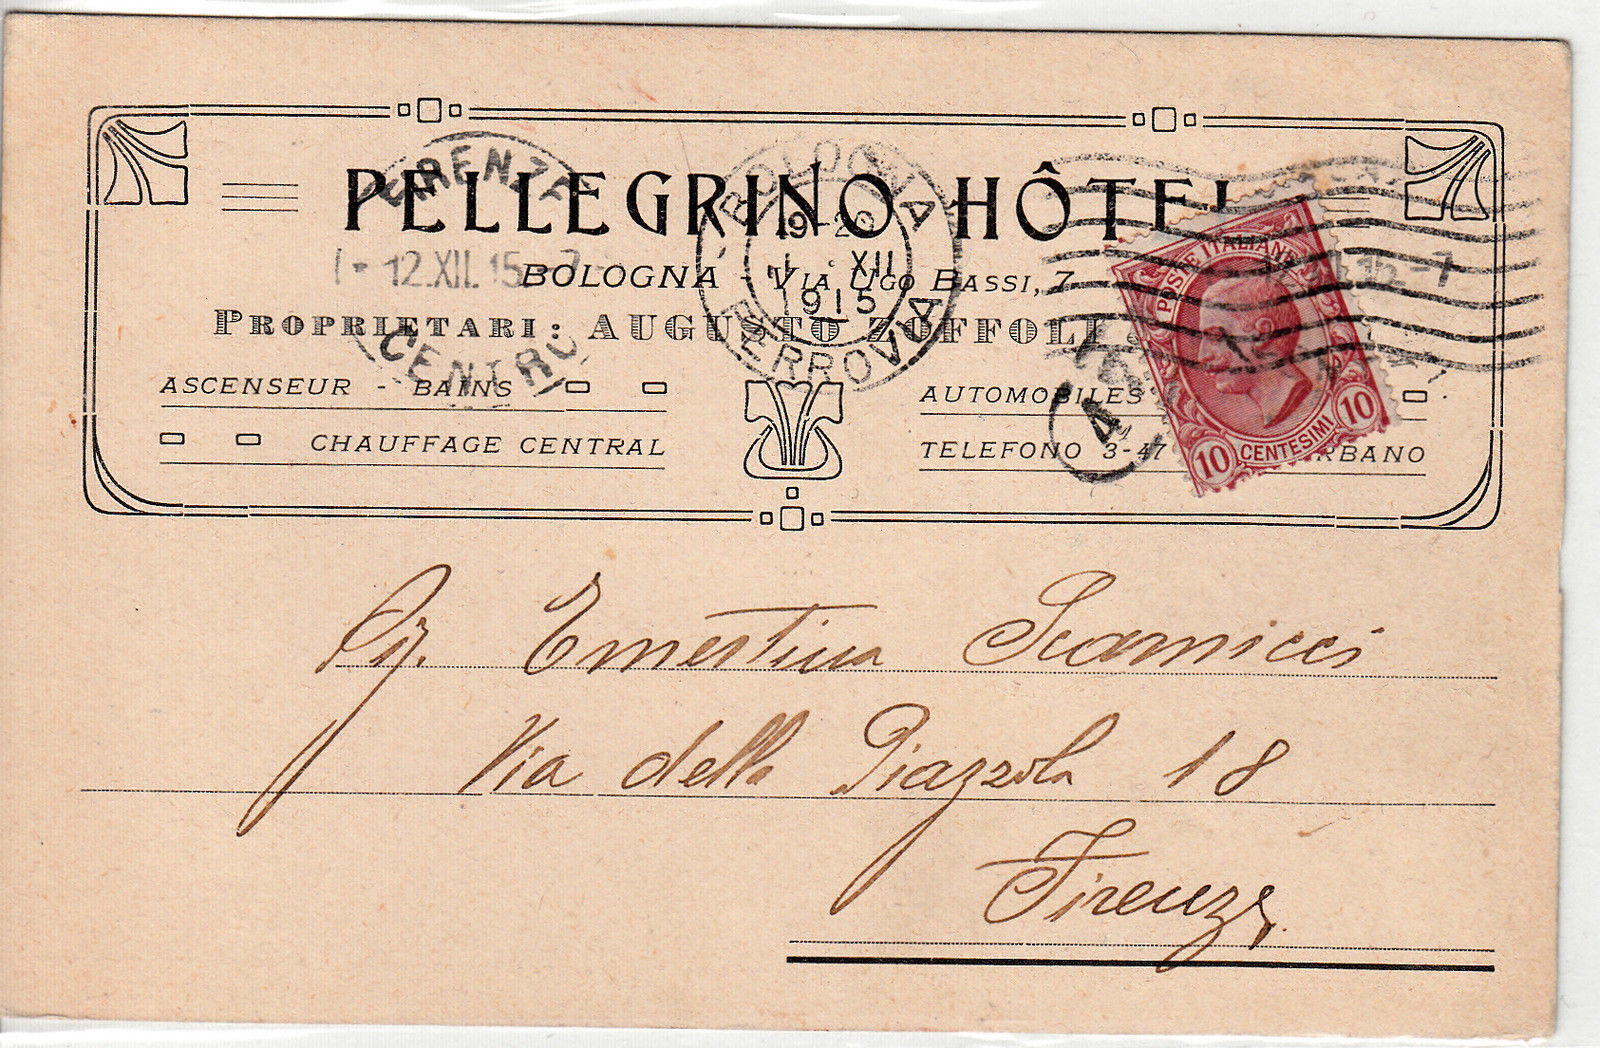 PELLEGRINO HÔTEL
BOLOGNA - VIA UGO BASSI, 7
PROPRIETARI: AUGUSTO ZOFFOLI
ASCENSEUR - BAINS
CHAUFFAGE CENTRAL
AUTOMOBILES
TELEFONO 3-47 RBANO
FIRENZE
12.XII.15 - 7
CENTRO
BOLOGNA
19-20
XII
1915
FERROVIA
POSTE ITALIANE
10 CENTESIMI 10
4
Sig. Ernestina Scarnicci
Via della Piazzola 18
Firenze